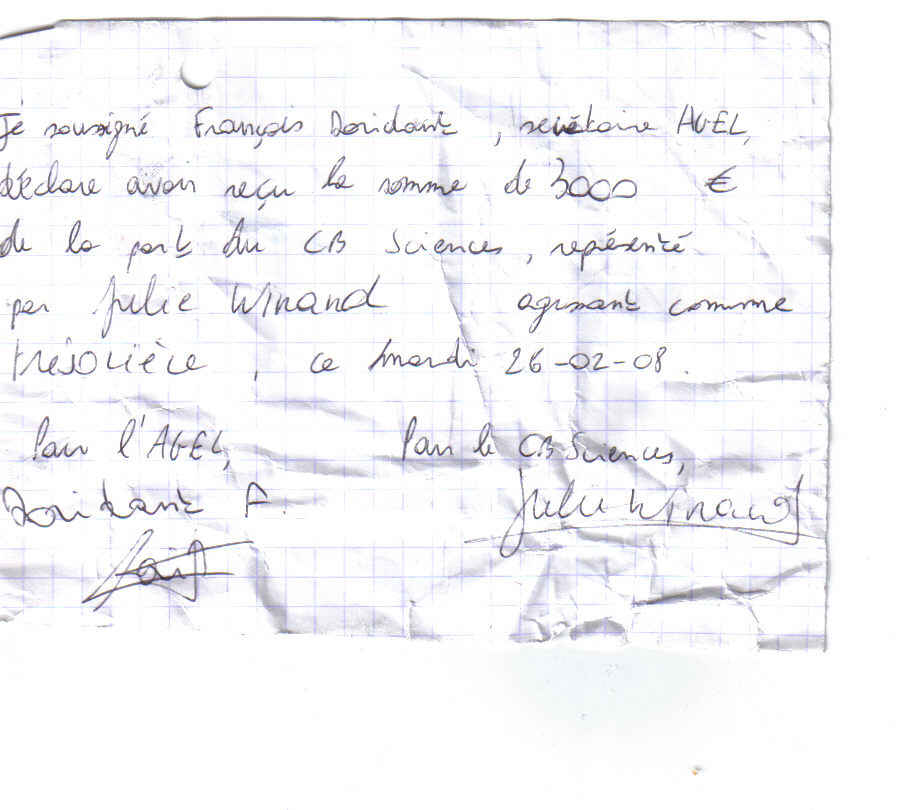 Je soussigné François Doridant, secrétaire AGEL,
déclare avoir reçu la somme de 3000 €
de la part du CB Sciences, représenté
par Julie Winand agissant comme
trésorière, ce mardi 26-02-08.
Pour l'AGEL, Pour le CB Sciences,
Doridant F. Julie Winand